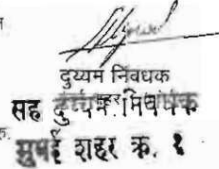 दुय्यम निबंधक
सह दुय्यम निबंधक
मुंबई शहर क्र. १